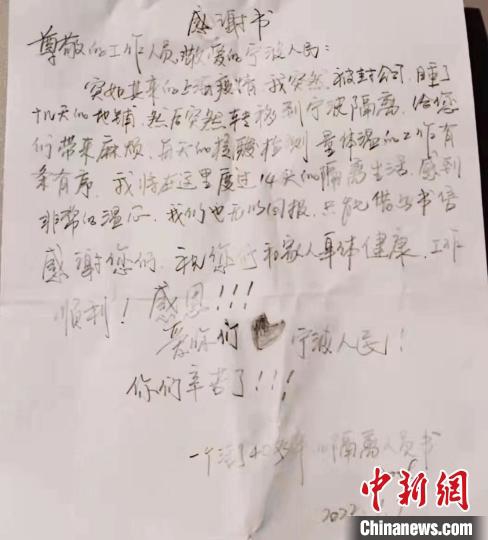 感谢书
尊敬的工作人员、敬爱的宁波人民：
突如其来的上海疫情，我突然被封公司，睡了
十几天的地铺，然后突然转移到宁波隔离，给您
们带来麻烦，每天的核酸检测，量体温的工作有
条有序，我将在这里度过14天的隔离生活，感到
非常的温心，我们也无以回报，只能借此书信
感谢您们，祝您们和家人身体健康、工作
顺利！感恩！！！
爱你们 宁波人民！
你们辛苦了！！！
一个 隔离人员书
2022
中新网
Chinanews.com